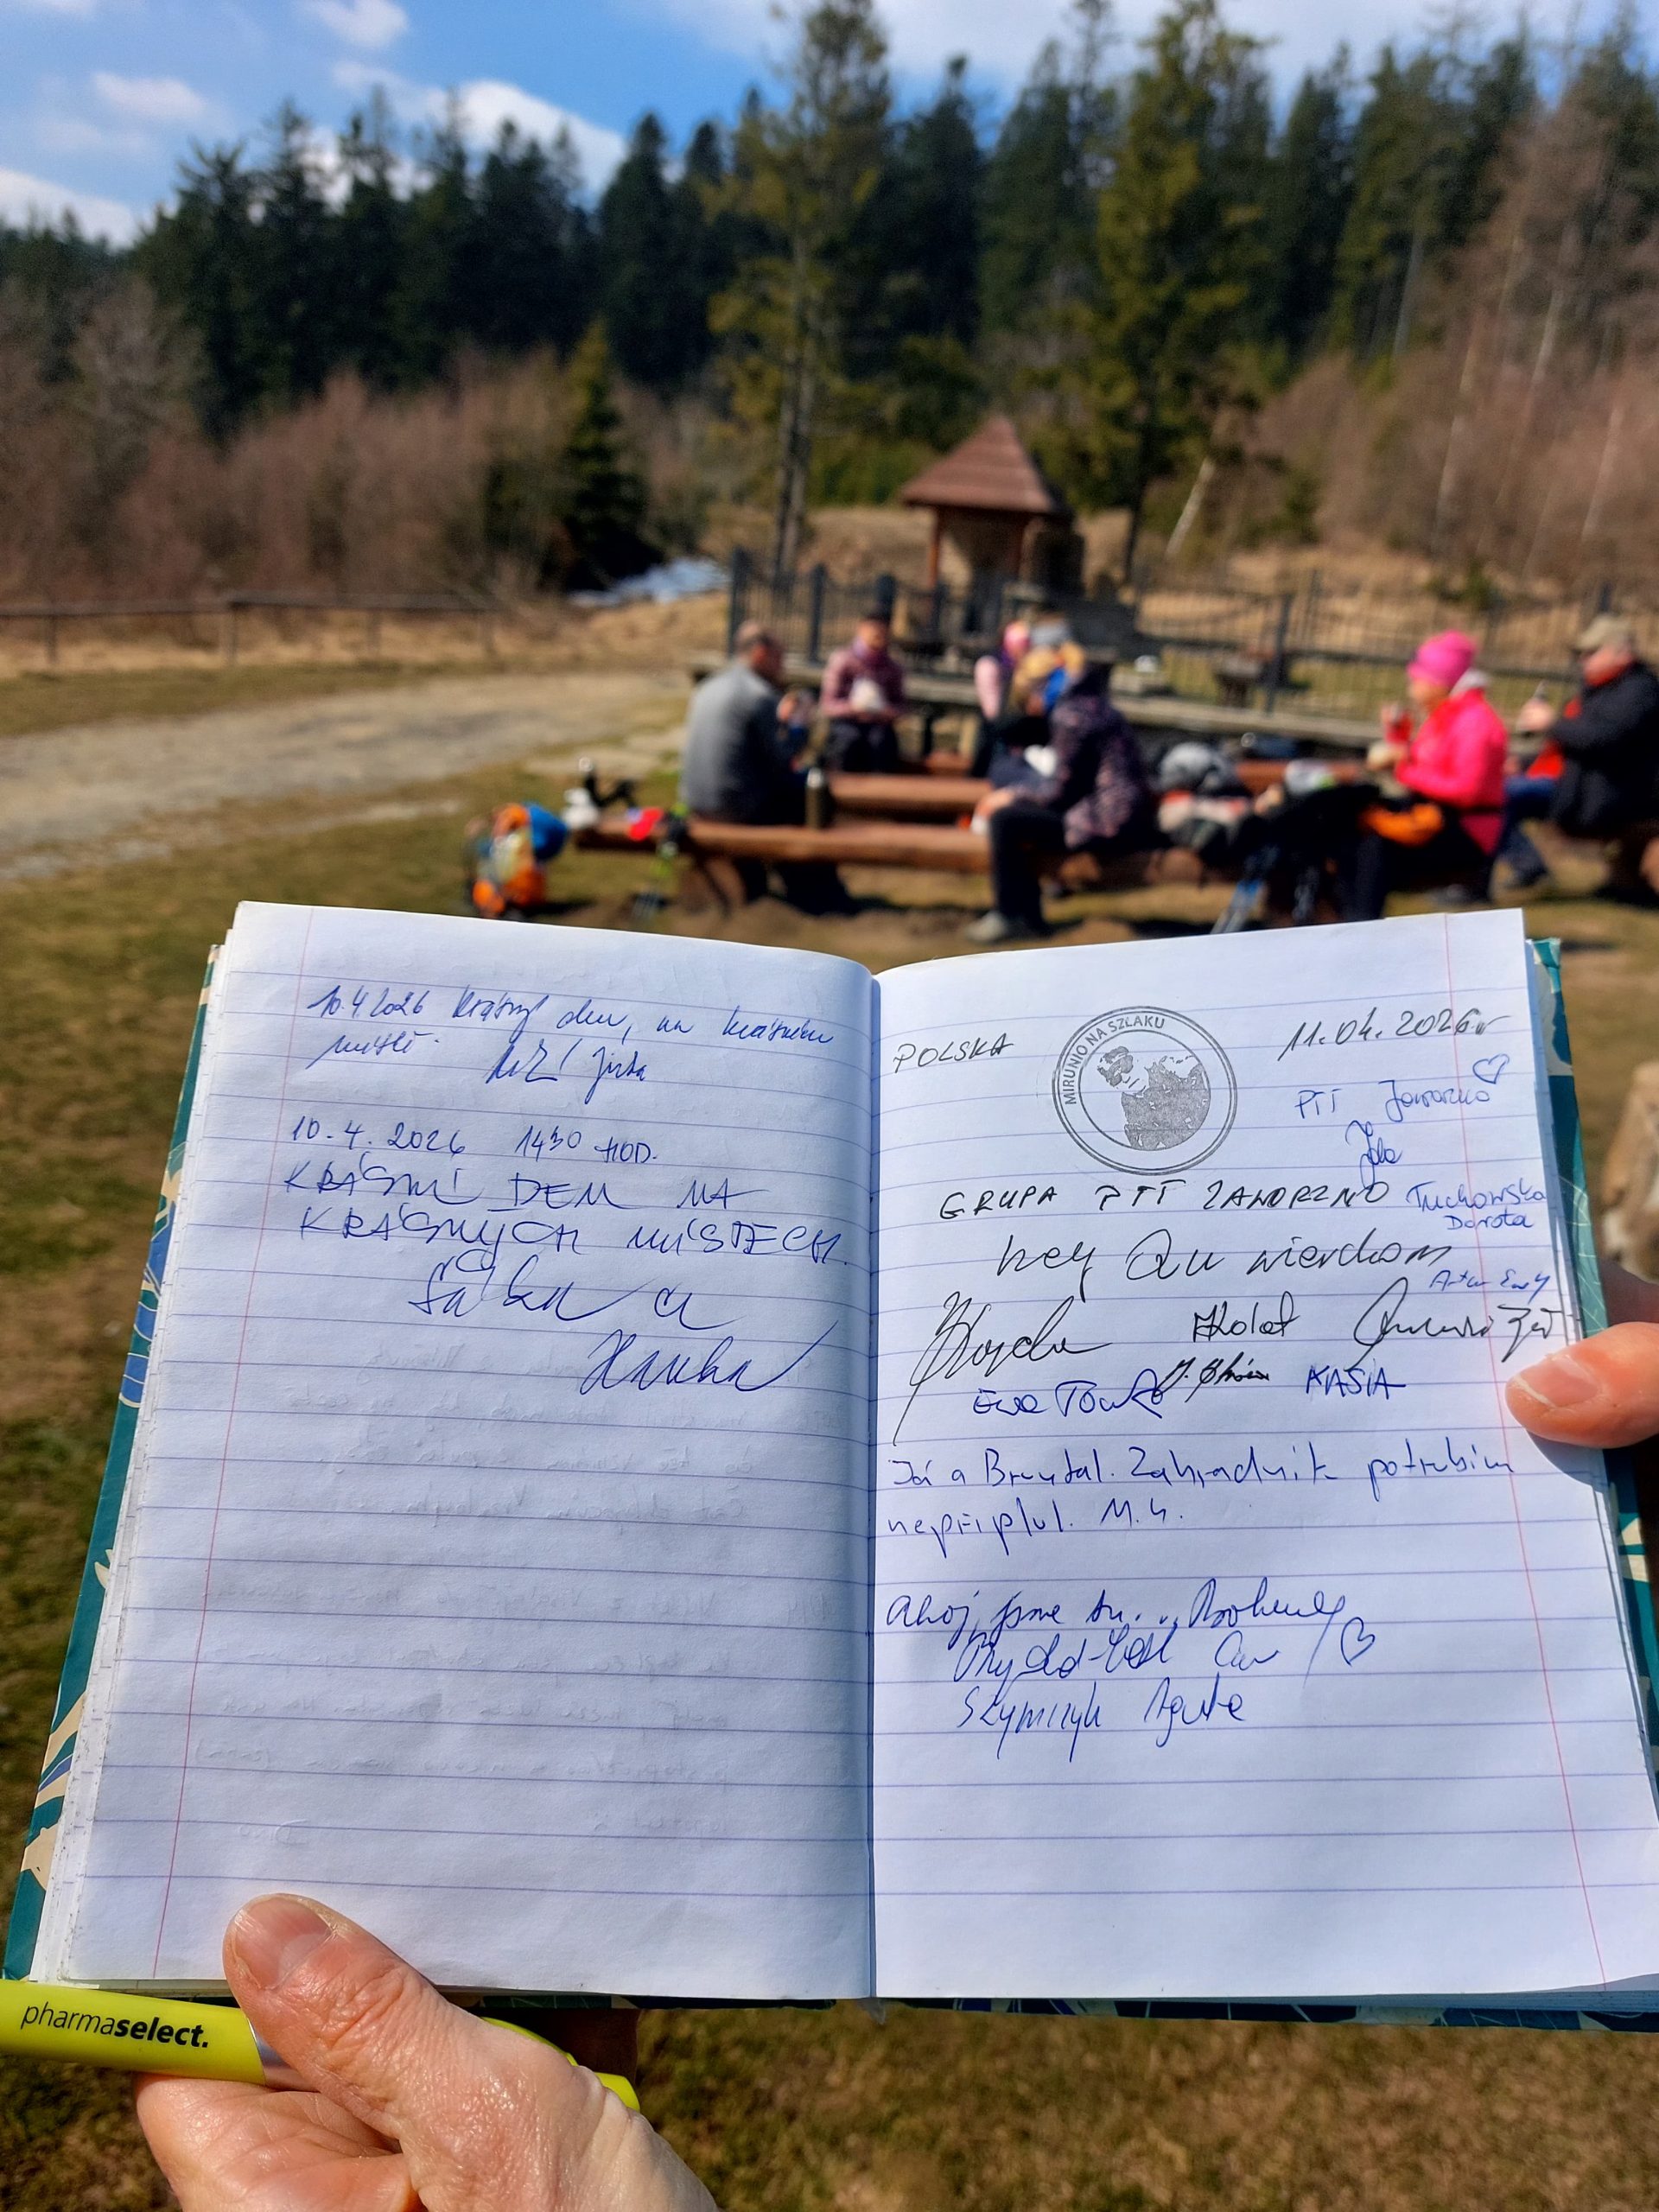 10.4.2026 krásný den, na krásném
místě.
Jirka
10.4.2026 14³⁰ HOD.
KRÁSNÍ DEN NA
KRÁSNÝCH MÍSTECH.
Šárka a
Hanka
POLSKA
MIRUNIO NA SZLAKU
11.04.2026r
PTT Jaworzno
Jola
GRUPA PTT JAWORZNO
Tuchowska
Dorota
hej ku wierchom
Artur
Ewa
KASIA
Já a Bruntál. Zahradník potrubím
nepřiplul. M.G.
Ahoj, jsme tu...
Szymczyk Agata
pharmaselect.